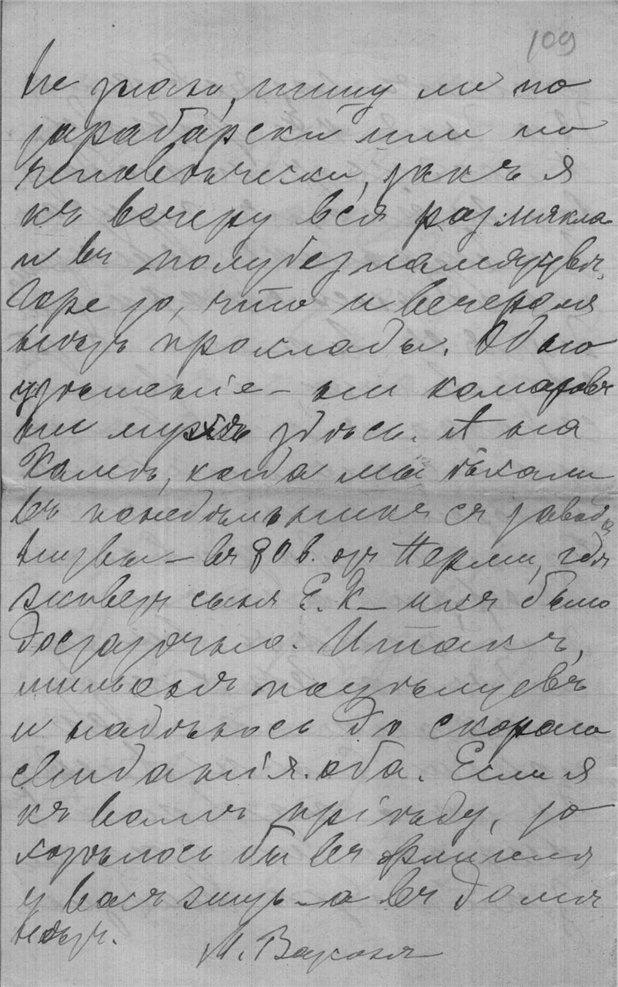 109
Не знаю, пишу ли по
тарабарски или по
человѣчески, такъ я
къ вечеру вся размякла
и въ полубезпамятствѣ.
Горе то, что и вечеромъ
нѣтъ прохлады. Одно
утѣшеніе – ни комаровъ
ни мухъ здѣсь. А на
Камѣ, когда мы ѣхали
въ понедѣльникъ съ завода
– въ 80 в. отъ Перми, гдѣ
живетъ сынъ Е. К – ихъ было
достаточно. Итакъ,
мильонъ поцѣлуевъ
и надѣюсь до скораго
свиданія. оба. Если я
къ вамъ пріѣду, то
хотѣлось бы въ флигелѣ
у васъ жить – а въ домѣ
нѣтъ.